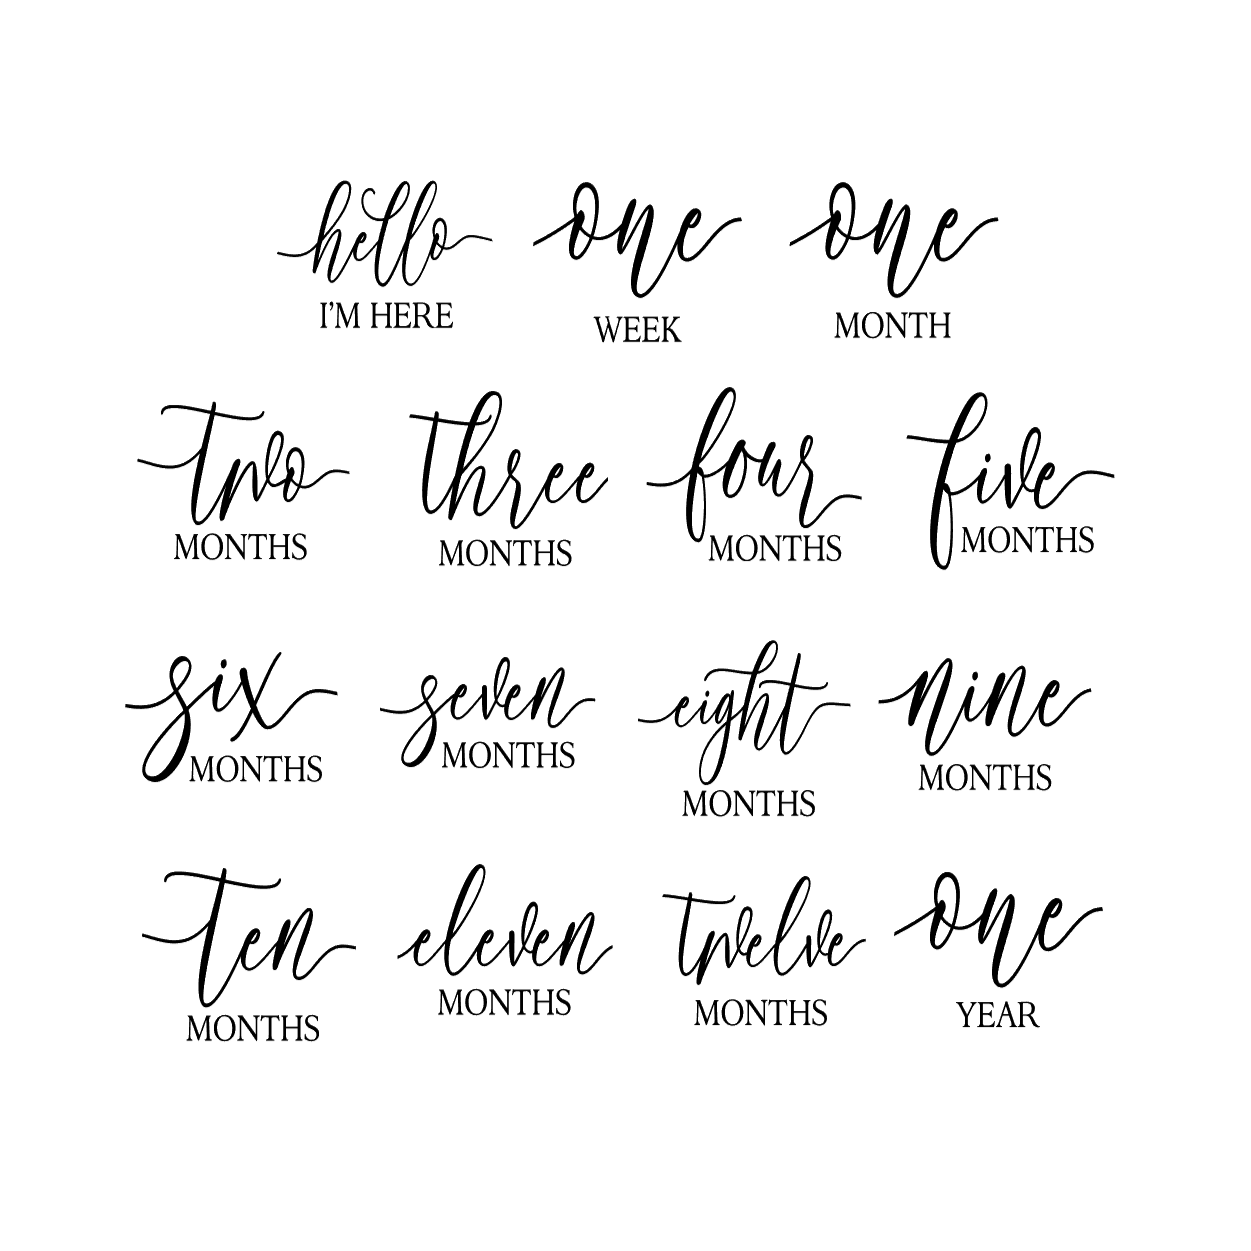 hello
I'M HERE
one
WEEK
one
MONTH
two
MONTHS
three
MONTHS
four
MONTHS
five
MONTHS
six
MONTHS
seven
MONTHS
eight
MONTHS
nine
MONTHS
ten
MONTHS
eleven
MONTHS
twelve
MONTHS
one
YEAR